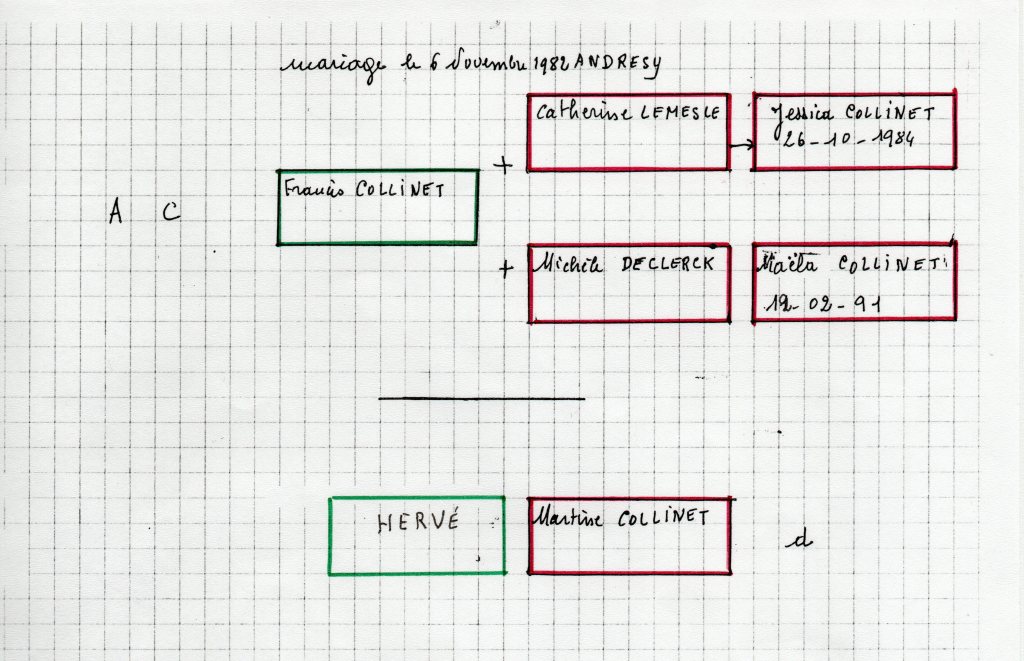 mariage le 6 Novembre 1982 ANDRESY
Catherine LEMESLE
Jessica COLLINET
26-10-1984
+
Francis COLLINET
A C
+ Michèle DECLERCK
Maëla COLLINET
12-02-91
HERVÉ
Martine COLLINET
d